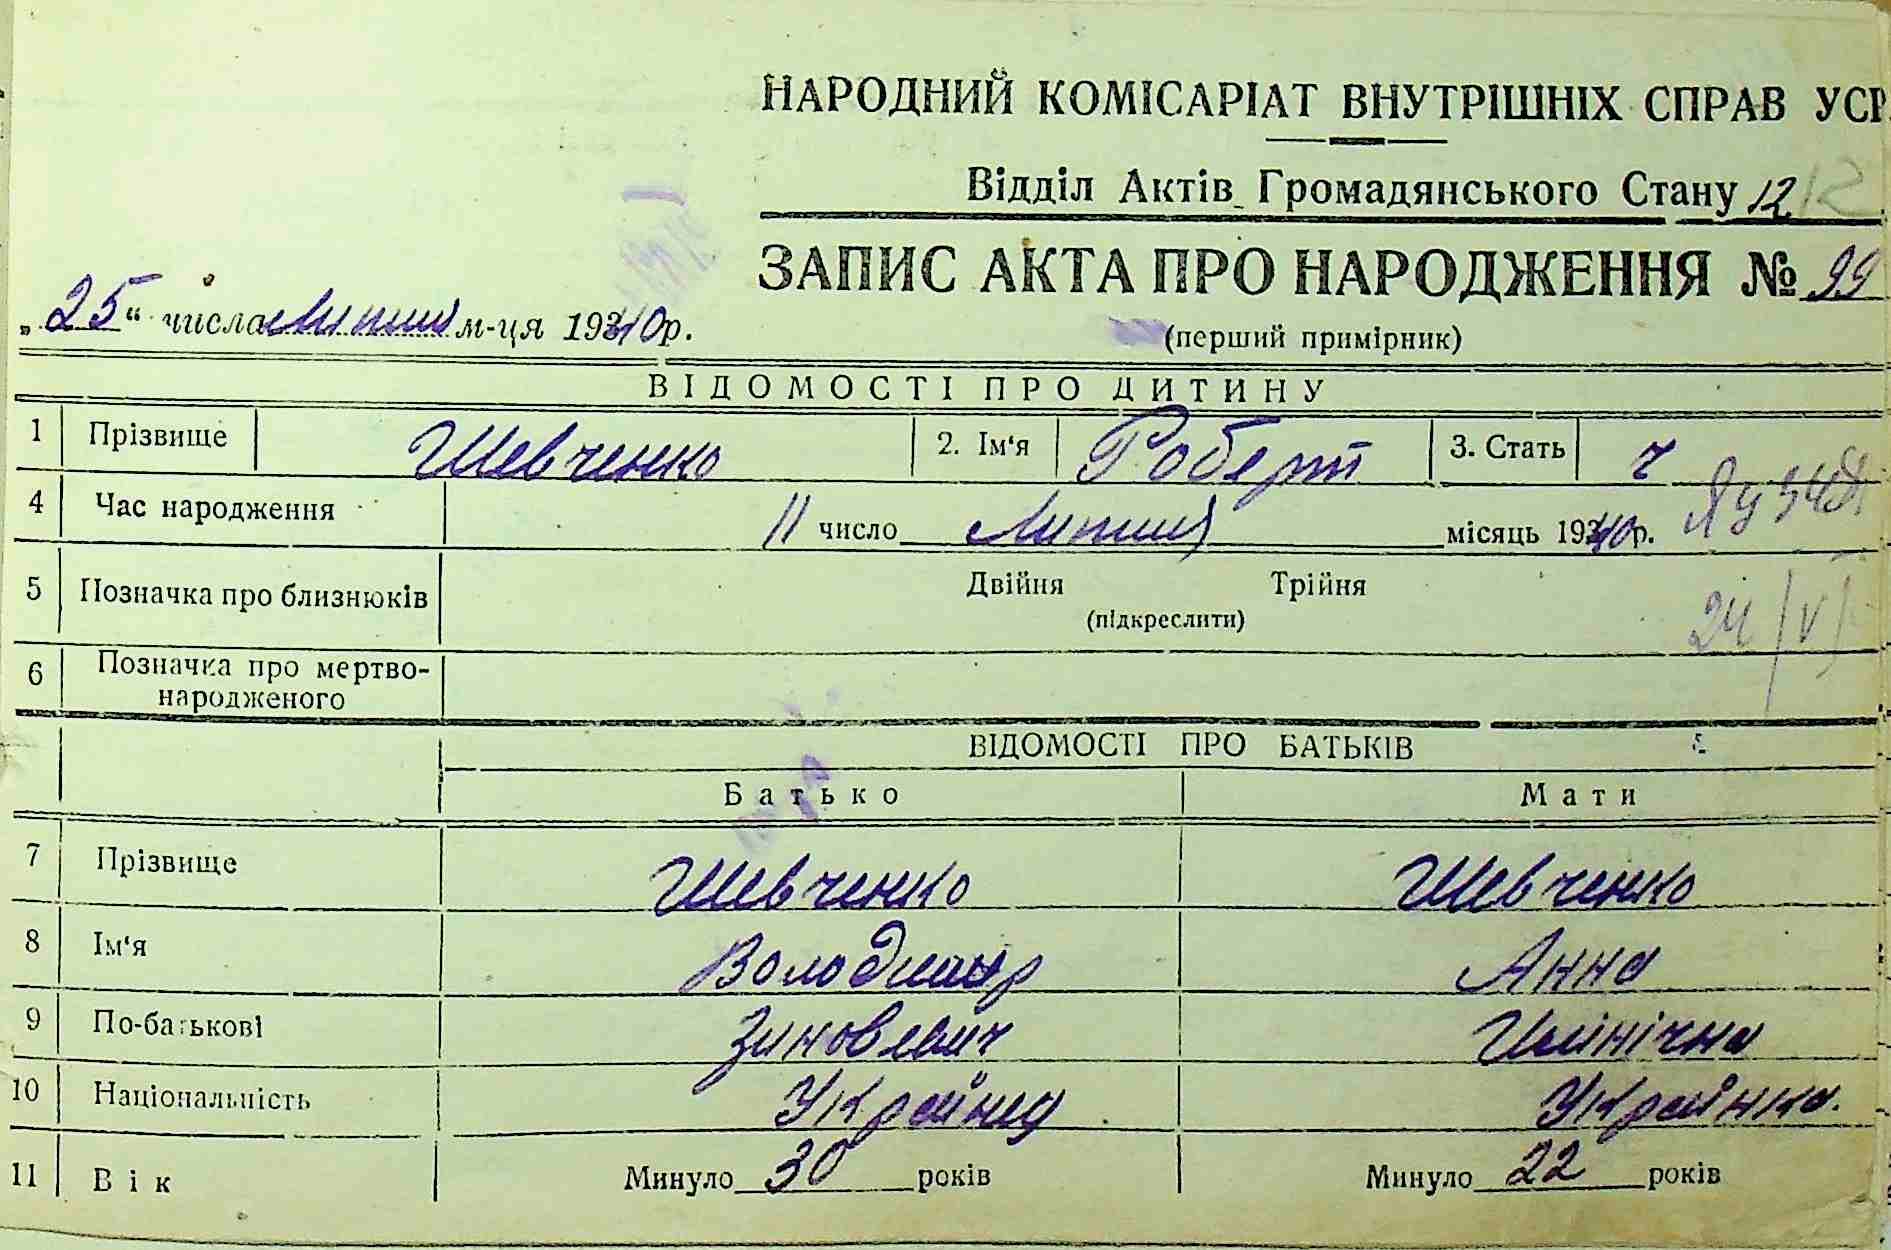 НАРОДНИЙ КОМІСАРІАТ ВНУТРІШНІХ СПРАВ УСР
Відділ Актів Громадянського Стану 12 12
ЗАПИС АКТА ПРО НАРОДЖЕННЯ № 99
„25“ числа Липня м-ця 1940р.
(перший примірник)
ВІДОМОСТІ ПРО ДИТИНУ
1 Прізвище Шевченко 2. Ім‘я Роберт 3. Стать ч
4 Час народження 11 число Липня місяць 1940р.
5 Позначка про близнюків Двійня Трійня
(підкреслити)
6 Позначка про мертво-
народженого
ВІДОМОСТІ ПРО БАТЬКІВ
Батько Мати
7 Прізвище Шевченко Шевченко
8 Ім‘я Володимир Анна
9 По-батькові Зиновевич Іллінічна
10 Національність Українец Українка.
11 Вік Минуло 30 років Минуло 22 років